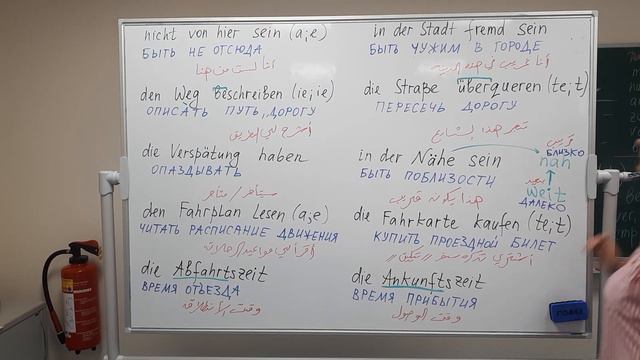 nicht von hier sein (a,e)
БЫТЬ НЕ ОТСЮДА
أنا لست من هنا
den Weg beschreiben (ie,ie)
ОПИСАТЬ ПУТЬ, ДОРОГУ
أشرح لي الطريق
die Verspätung haben
ОПАЗДЫВАТЬ
den Fahrplan lesen (a,e)
ЧИТАТЬ РАСПИСАНИЕ ДВИЖЕНИЯ
die Abfahrtszeit
ВРЕМЯ ОТЪЕЗДА
in der Stadt fremd sein
БЫТЬ ЧУЖИМ В ГОРОДЕ
die Straße überqueren (te,t)
ПЕРЕСЕЧЬ ДОРОГУ
in der Nähe sein
БЫТЬ ПОБЛИЗОСТИ
БЛИЗКО
nah
weit
ДАЛЕКО
die Fahrkarte kaufen (te,t)
КУПИТЬ ПРОЕЗДНОЙ БИЛЕТ
die Ankunftszeit
ВРЕМЯ ПРИБЫТИЯ
وقت الوصول